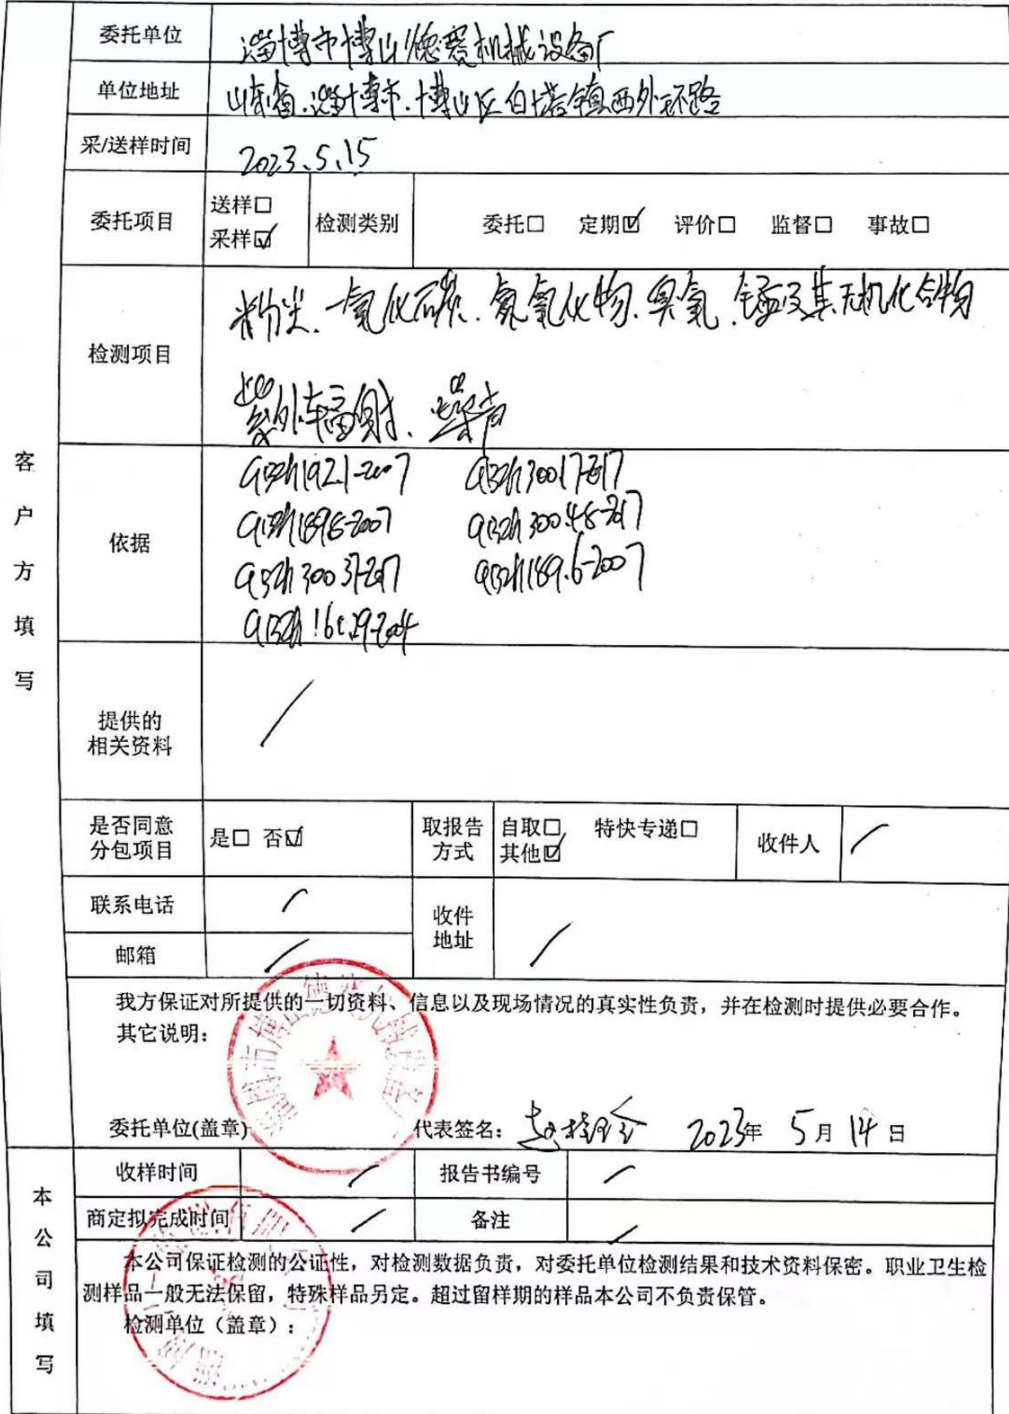 委托单位 淄博市博山德赛机械设备厂
单位地址 山东省.淄博市.博山区白塔镇西外环路
采/送样时间 2023.5.15
委托项目 送样□ 采样☑ 检测类别 委托□ 定期☑ 评价□ 监督□ 事故□
检测项目 粉尘、一氧化碳、氮氧化物、臭氧、锰及其无机化合物
紫外辐射、噪声
客户方填写
依据 GBZ/T 192.1-2007 GBZ/T 300.17-2017
GBZ/T 189.8-2007 GBZ/T 300.48-2017
GBZ/T 300.37-2017 GBZ/T 189.6-2007
GBZ/T 160.29-2004
提供的
相关资料 /
是否同意
分包项目 是□ 否☑ 取报告
方式 自取□ 特快专递□
其他☑ 收件人 /
联系电话 / 收件
地址 /
邮箱 /
我方保证对所提供的一切资料、信息以及现场情况的真实性负责，并在检测时提供必要合作。
其它说明：
委托单位(盖章) 代表签名： 2023年 5月 14日
本公司填写
收样时间 / 报告书编号 /
商定拟完成时间 / 备注 /
本公司保证检测的公证性，对检测数据负责，对委托单位检测结果和技术资料保密。职业卫生检
测样品一般无法保留，特殊样品另定。超过留样期的样品本公司不负责保管。
检测单位（盖章）：